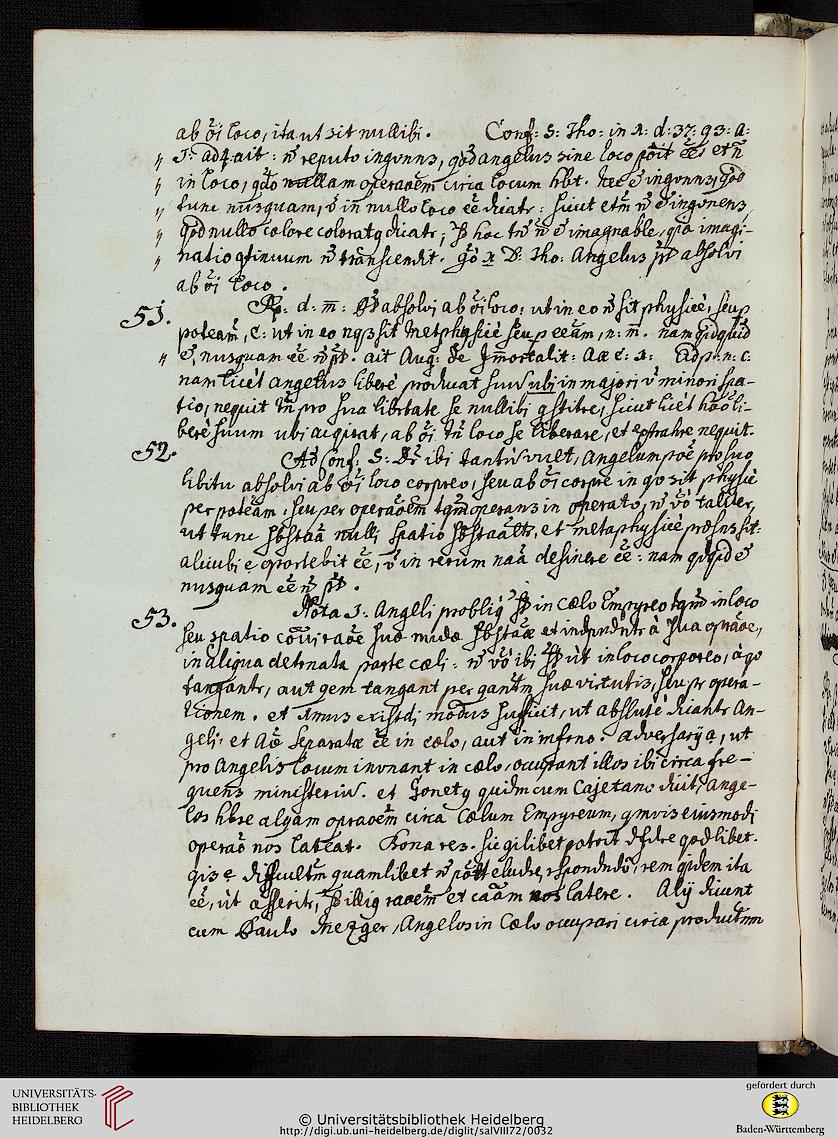 ab o͞i loco, ita ut sit nullibi. Conf: S: Tho: in 1: d: 37: q3: a:
1: ad 4 ait: n͞ reputo inconvns, qod angelus sine loco poīt ēe et n͞
in loco, qdo nullam operaōem circa locum hbt. nec ē inconvns, qod
tunc nusquam, v in nullo loco ēe dicatr: sicut etm n͞ ē inconvens,
qod nullo colore coloratq dicatr; sd hoc tn͞ n͞ ē imagnable, qia imagi-
natio qtinuum n͞ transcendit. go x D: Tho: Angelus pt absolvi
ab o͞i loco.
51. Rp: d: m͞: Pt absolvi ab o͞i loco: ut in eo n͞ sit physicè, seu p
poteam, C: ut in eo nqz sit metphysicè seu p eeam, n: m͞. nam qidquid
ē, nusquam ēe n͞ pt. ait Aug: de Immortalit: Aæ c: 1: Ad p: n: c:
nam licèt angelus liberè producat suum ubi in majori v minori spa-
tio, nequit tn͞ pro sua libertate se nullibi qstitre, sicut licèt hoō li-
berè suum ubi acqirat, ab o͞i tn͞ loco se liberare, et extrahre nequit.
52. Ad Conf: S: Dr ibi tantum vult, Angelum poe pro suo
libitu absolvi ab o͞i loco corpreo, seu ab o͞i corpre in qo sit physicè
per poteam, seu per operaōem tqm operans in operato, n͞ vo taliter,
ut tunc sbstaa nulli spatio sbstaaltr, et metaphysicè præsns sit:
alicubi e oportebit ēe, v in rerum naa desinere ēe: nam qidqid ē
nusquam ēe n͞ pt.
53. Nota 1: Angeli problq st in cælo Empyreo tqm in loco
seu spatio suæ nudæ sbstaæ et indpndntr à sua opraōe,
in aliqua detrnata parte cæli: n͞ vo ibi st ut in loco corporeo, à qo
tangantr, aut qem tangant per qantm suæ virtutis, seu pr opera-
tionem. et primus existdi modus sufficit, ut absolutè dicantr An-
geli, et Aæ separatæ ēe in cælo, aut in inferno. adversarij a, ut
pro Angelis locum invnant in cælo, occupant illos ibi circa fre-
quens ministerium. et Gonetq quidm cum Cajetano dicit, Ange-
los hbre alqam opraōem circa Cælum Empyreum, qmvis eiusmodi
operaō nos lateat. Bona res. sic qilibet poterit dfdre qodlibet.
qis e difficultm quamlibet n͞ pott eludre, rspondndo, rem qidem ita
ēe, ut asseritr, sd illiq raōem et caam nos latere. Alij dicunt
cum Paulo Mezger, Angelos in Cælo occupari circa productnm
UNIVERSITÄTS-
BIBLIOTHEK
HEIDELBERG
© Universitätsbibliothek Heidelberg
http://digi.ub.uni-heidelberg.de/diglit/salVIII72/0032
gefördert durch
Baden-Württemberg